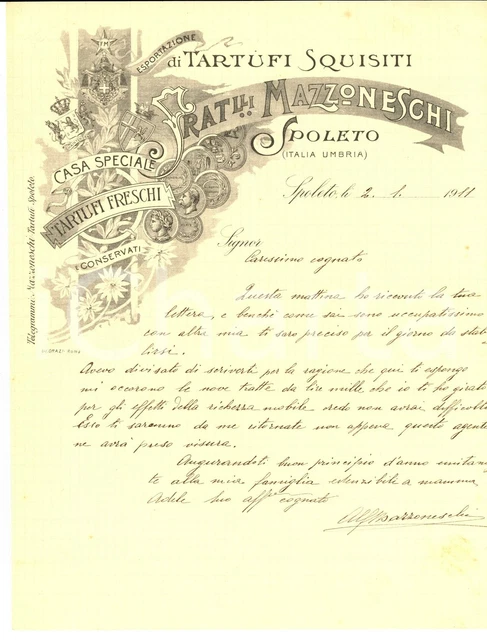 FM
ESPORTAZIONE
di TARTUFI SQUISITI
FRATELLI MAZZONESCHI
SPOLETO
(ITALIA UMBRIA)
CASA SPECIALE
TARTUFI FRESCHI
E CONSERVATI
Telegrammi: Mazzoneschi Tartufi Spoleto.
Spoleto, li 2. 1. 1911
Signor
Carissimo cognato
Questa mattina ho ricevuto la tua
lettera, e benchi come sai sono occupatissimo
con altra mia ti saro preciso per il giorno da stab-
lirsi.
Avevo divisato di scriverti per la ragione che qui ti espongo
mi occorono le nove tratte da lire mille che io ti ho girato
per gli effetti della richezza mobile credo non avrai difficolta
Esse ti saranno da me ritornate non appena questo agente
ne avrà preso visura.
Augurandoti buon principio d'anno unitamen-
te alla mia famiglia estensibile a mamma
Adele tuo aff.mo cognato
Alf Mazzoneschi